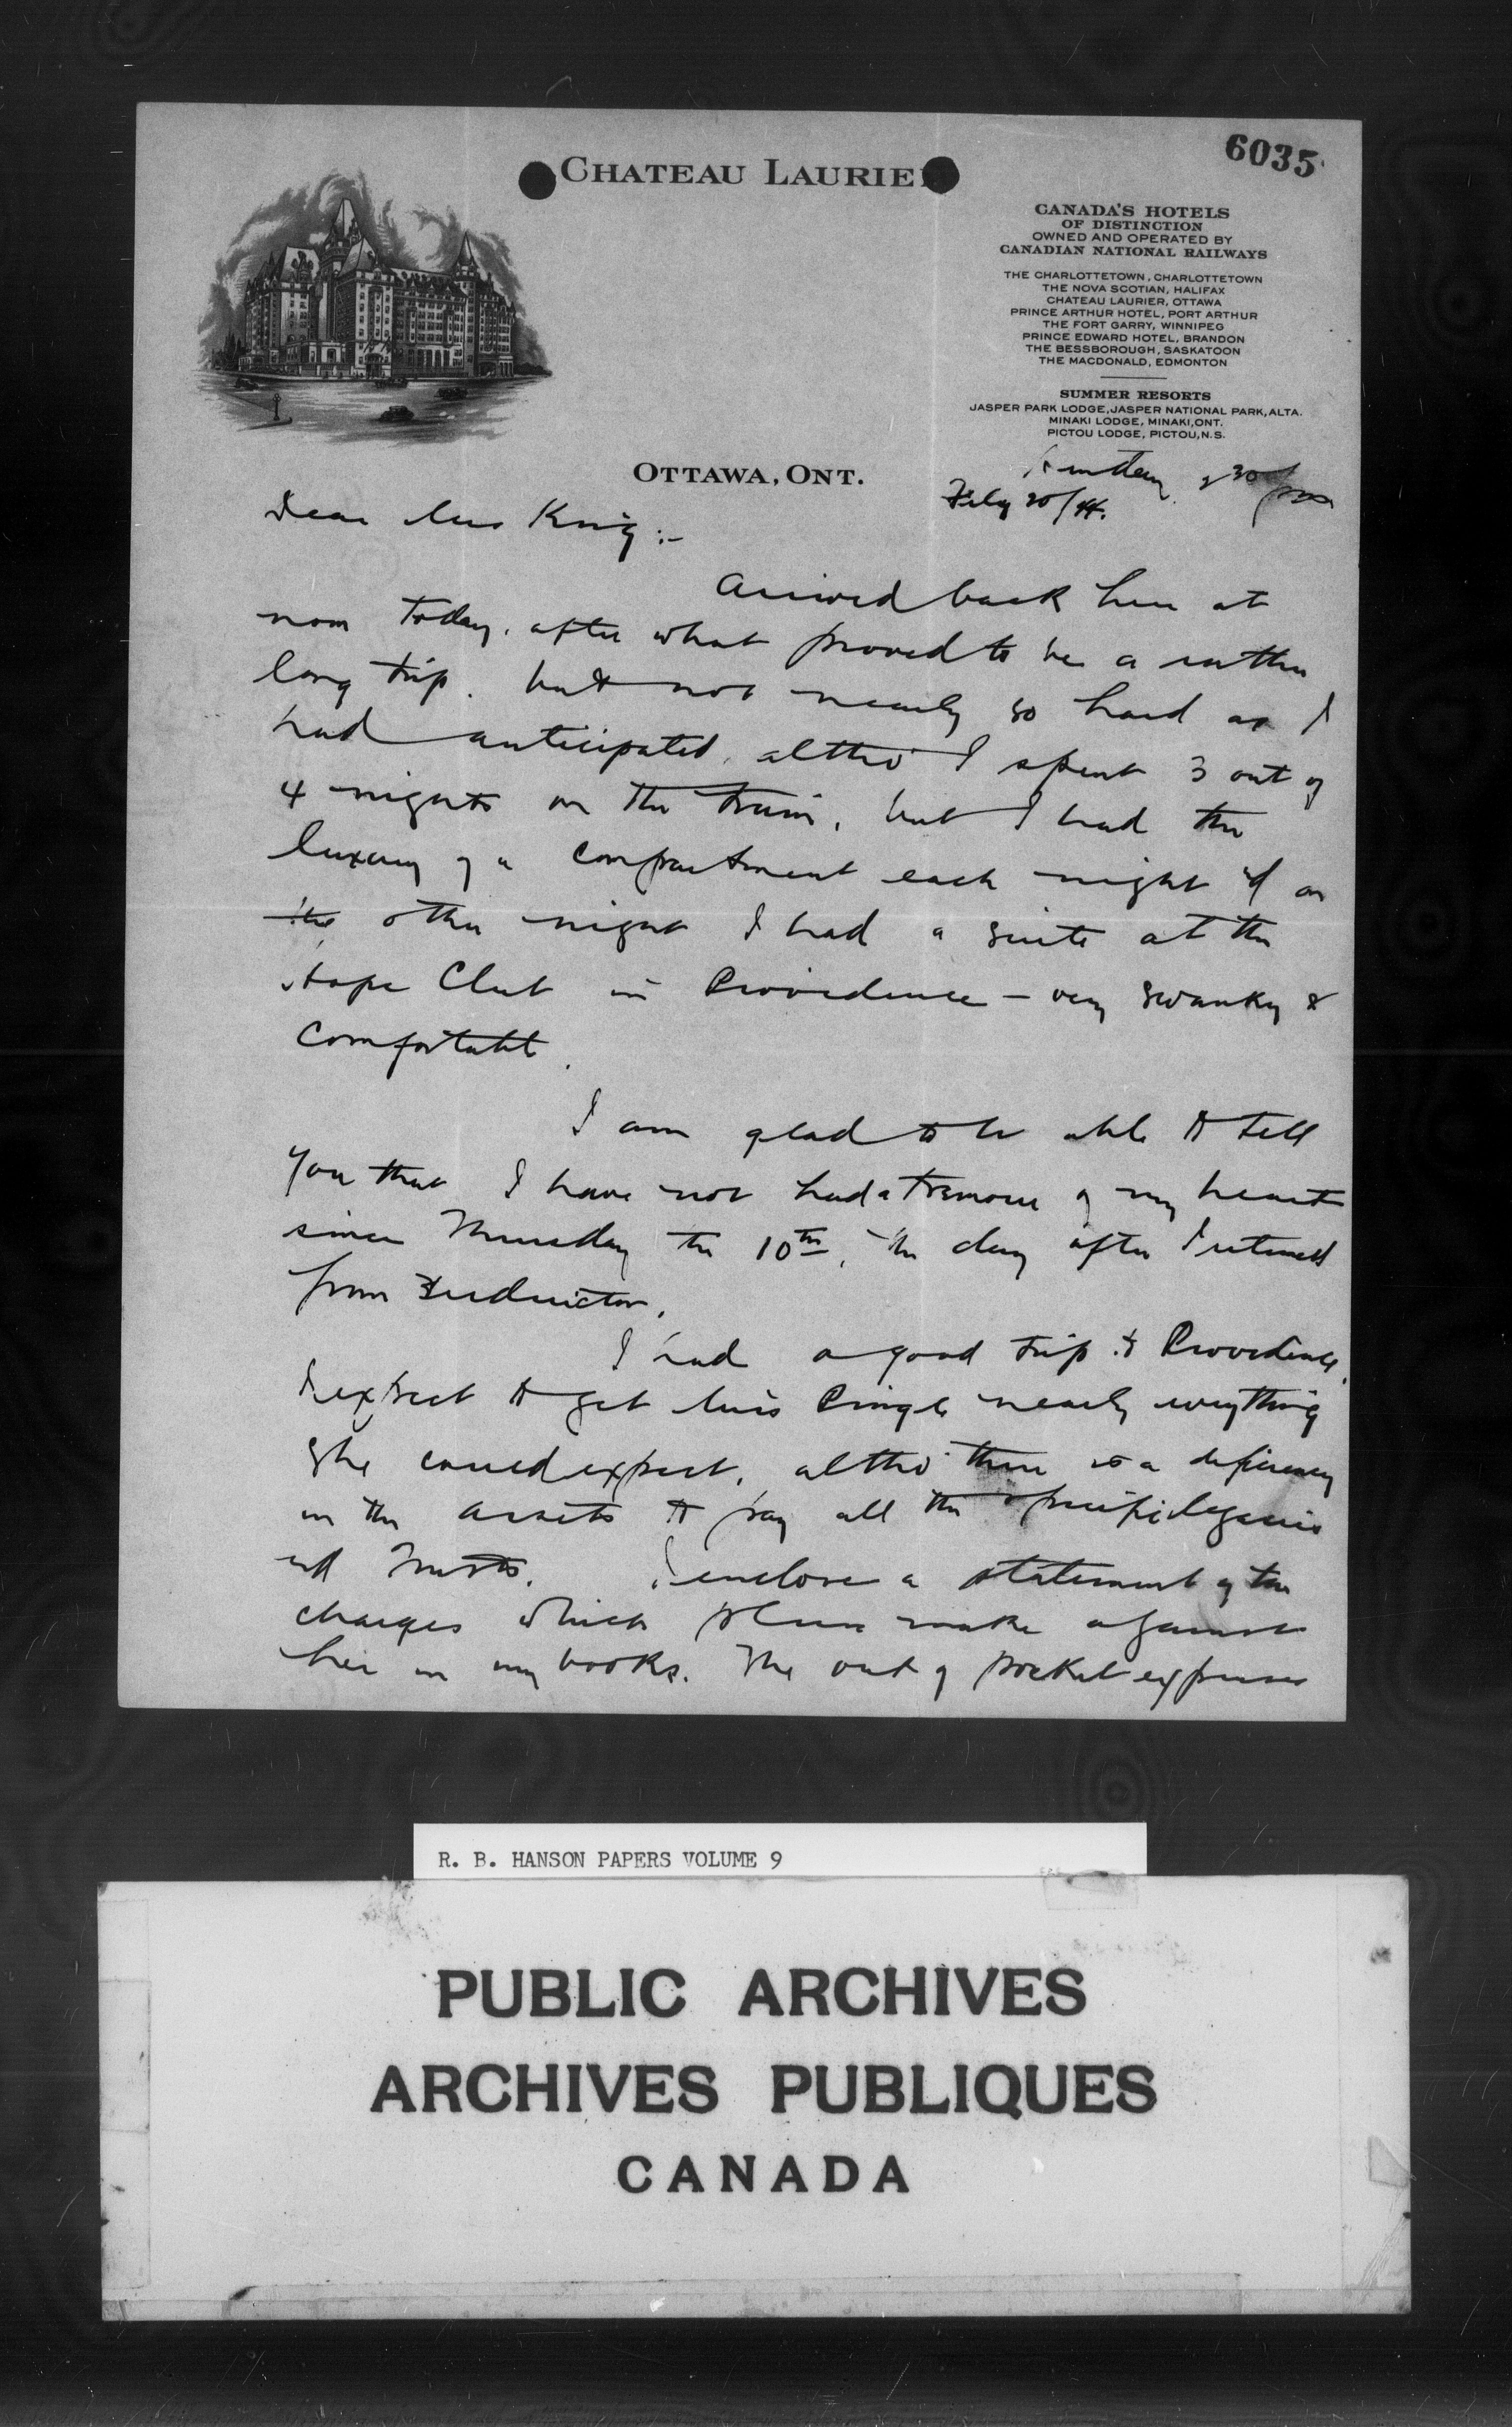 6035
CHATEAU LAURIE
CANADA'S HOTELS
OF DISTINCTION
OWNED AND OPERATED BY
CANADIAN NATIONAL RAILWAYS
THE CHARLOTTETOWN, CHARLOTTETOWN
THE NOVA SCOTIAN, HALIFAX
CHATEAU LAURIER, OTTAWA
PRINCE ARTHUR HOTEL, PORT ARTHUR
THE FORT GARRY, WINNIPEG
PRINCE EDWARD HOTEL, BRANDON
THE BESSBOROUGH, SASKATOON
THE MACDONALD, EDMONTON
SUMMER RESORTS
JASPER PARK LODGE, JASPER NATIONAL PARK, ALTA.
MINAKI LODGE, MINAKI, ONT.
PICTOU LODGE, PICTOU, N.S.
OTTAWA, ONT.
Sunday 2 30 pm
Feby 20/44.
Dear Miss King :-
Arrived back here at
noon today, after what proved to be a rather
long trip. but not nearly so hard as I
had anticipated, altho' I spent 3 out of
4 nights on the train, but I had the
luxury of a compartment each night & on
the other night I had a suite at the
Hope Club in Providence - very swanky &
comfortable.
I am glad to be able to tell
you that I have not had a tremour of my heart
since Thursday the 10th, the day after I returned
from Fredericton.
I had a good trip to Providence.
I expect to get Miss Pringle nearly everything
she could expect, altho' there is a deficiency
in the assets to pay all the specific legacies
and Trusts. I enclose a statement of the
charges which please make against
her in my books. The out of pocket expenses
R. B. HANSON PAPERS VOLUME 9
PUBLIC ARCHIVES
ARCHIVES PUBLIQUES
CANADA